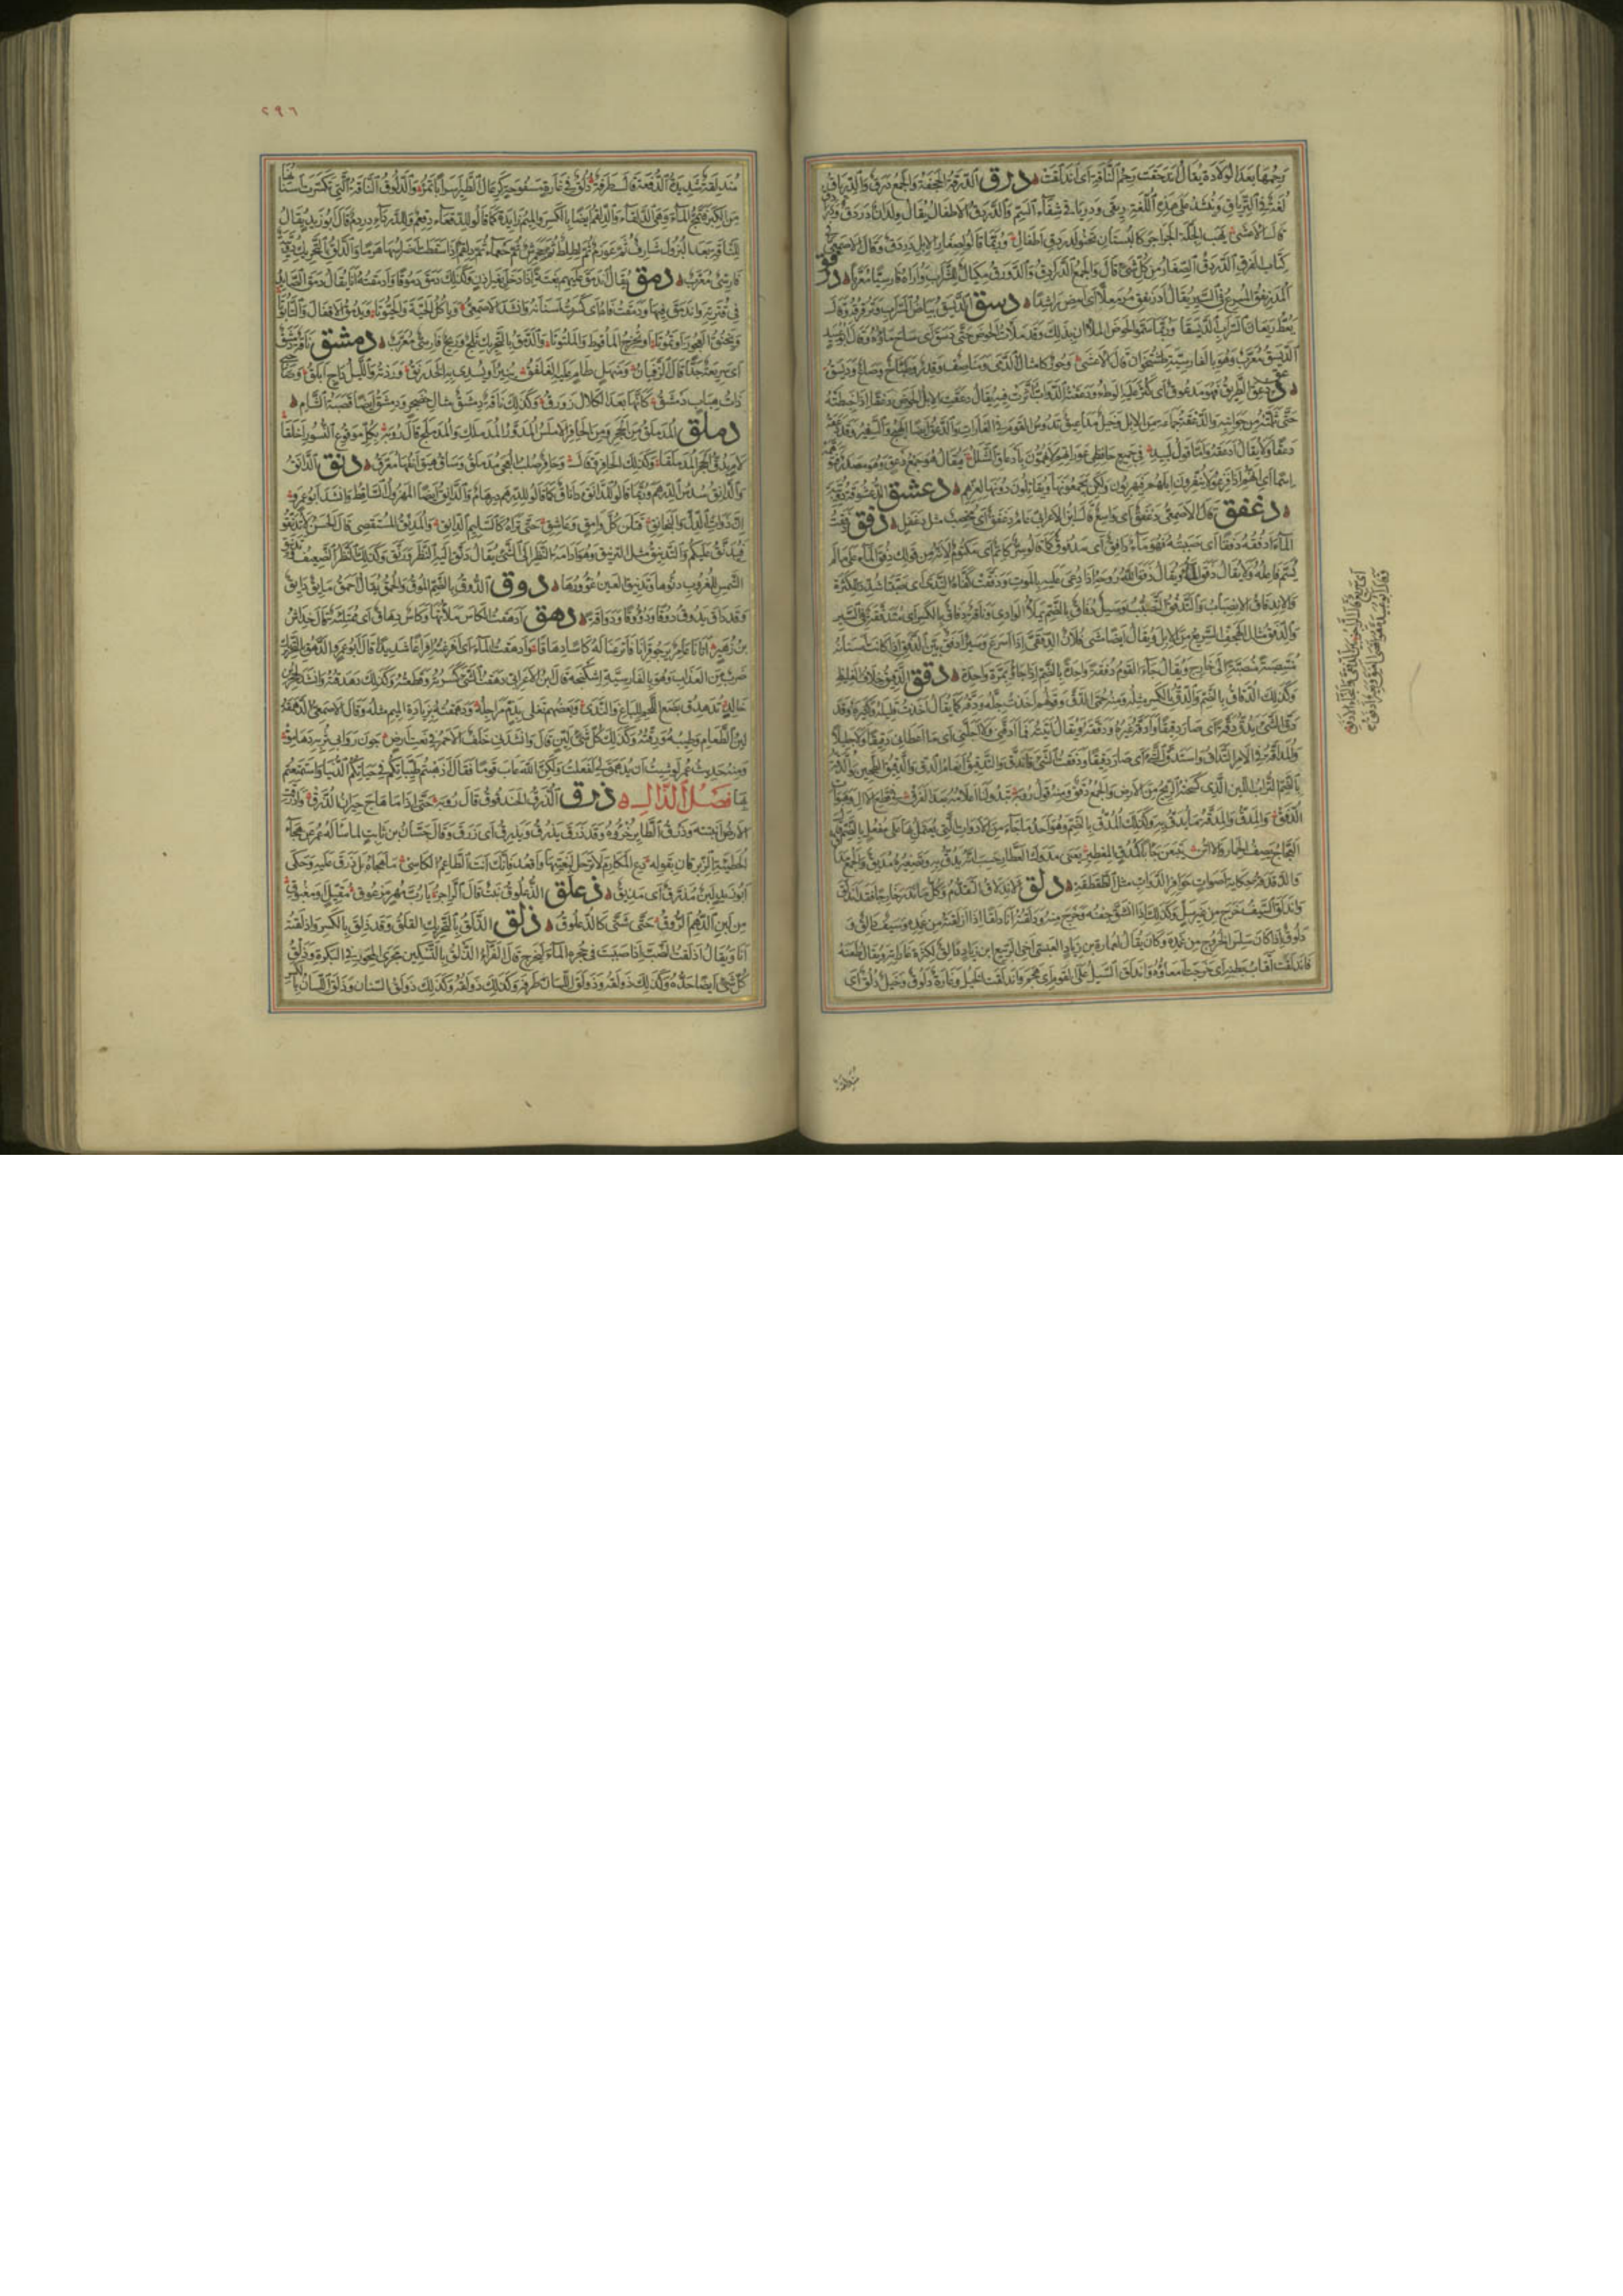 رحمها بعد الولادة يقال اندحقت رحم الناقة اى اندلقت درق الدرقة الحجفة والجمع درق والدرياق
لغة فى الترياق وينشد على هذه اللغة ريقى ودرياقى شفاء السم والدردق الاطفال يقال ولدان دردق
قال الاعشى يهب الجلة الجراجر كالبستان تحنو لدردق اطفال وربما قالوا لصغار الابل دردق وقال الاصمعى فى
كتاب الفرق الدردق الصغار من كل شىء قال والجمع الدرادق والدورق مكيال للشراب واراه فارسيا معربا
المدرنفق المسرع فى السير يقال ادرنفق مرمعلا اى امض راشدا دسق الديسق بياض السراب وترقرقه قال
يعط ريعان السراب الديسقا وربما سموا الحوض الملآن بذلك وقد ملأت الحوض حتى دسق اى ساح ماؤه وقال ابو عبيد
الديسق معرب وهو بالفارسية طشتخوان قال الاعشى وحور كامثال الدمى ومناصف وقدر وطباخ وصاع وديسق
دعق الطريق فهو مدعوق اى كثر عليه الوطء ودعقته الدواب اثرت فيه يقال دعقت الابل الحوض دعقا اذا خبطته
حتى ثلمته من جوانبه والدعقة جماعة من الابل وخيل مداعيق تدوس القوم فى الغارات
دعقا ولا يقال ادعقه واما قول لبيد فى جميع حافظى عوراتهم لا يهمون بادعاق الشلل فيقال هو جمع دعق وهو مصدر
دعشق
دغفق قال الاصمعى عيش دغفق اى واسع قال ابن الاعرابى عام دغفق اى مخصب مثل دغفل دفق دفقت
الماء ادفقه دفقا اى صببته فهو ماء دافق اى مدفوق كما قالوا سر كاتم اى مكتوم لانه من قولك دفق الماء على ما لم
يسم فاعله ولا يقال دفق الماء ويقال دفق الله روحه اذا دعى عليه بالموت ودفقت كفاه الندى اى صبتا شدد للكثرة
والاندفاق الانصباب والتدفق التصبب وسيل دفاق بالضم يملأ الوادى وناقة دفاق بالكسر اى متدفقة فى السير
والدفق مثال الهجف السريع من الابل ويقال ايضا مشى فلان الدفقى اذا اسرع وبعير ادفق بين الدفق اذا كانت اسنانه
منتصبة الى خارج ويقال جاء القوم دفقة واحدة بالضم اذا جاؤا بمرة واحدة دقق الدقيق خلاف الغليظ
وكذلك الدقاق بالضم والدق بالكسر مثله ومنه حمى الدق وقولهم اخذت جله ودقه كما يقال اخذت قليله وكثيره وقد
دق الشىء يدق دقة اى صار دقيقا وادقه غيره ودققه ويقال اتيته فما ادقنى ولا اجلنى اى ما اعطانى دقيقا ولا جليلا
والمداقة فى الامر التداق واستدق الشىء اى صار دقيقا ودققت الشىء فاندق والتدقيق انعام الدق والدقيق الطحين والدقة
بالضم التراب اللين الذى كسحته الريح من الارض والجمع دقق ومنه قول رؤبة تبدو لنا اعلامه بعد الغرق فى قطع الآل وهبوات
الدقق والمدق والمدقة ما يدق به وكذلك المدق بالضم وهو احد ما جاء من الادوات التى يعتمل بها على مفعل بالضم قال
العجاج يصف الحمار والاتن يتبعن جأبا كمدق المعطير يعنى مدوك العطار حسب انه يدق به وتصغيره مديق والجمع مداق
والدقدقة حكاية اصوات حوافر الدواب مثل الطقطقة دلق الاندلاق التقدم وكل ما ندر خارجا فقد اندلق
واندلق السيف خرج من غير سل وكذلك اذا انشق جفنه وخرج منه ودلقته انا دلقا اذا ازلقته من غمده وسيف دالق و
دلوق اذا كان سلس الخروج من غمده وكان يقال لعمارة بن زياد العبسى اخى الربيع ابن زياد دالق لكثرة غاراته ويقال طعنه
فاندلقت اقتاب بطنه اى خرجت امعاؤه واندلق السيل على القوم اى هجم واندلقت الخيل وغارة دلوق وخيل دلق اى
٢٩٦
مندلقة شديدة الدفعة قال طرفة دلق فى غارة مسفوحة كرعال الطير اسرابا تمر والدلوق الناقة التى تكسرت اسنانها
من الكبر فتمج الماء وهى الدلقاء والدلقم ايضا بالكسر والميم زايدة كما قالوا للدقعاء دقعم وللدرداء دردم قال ابو زيد يقال
للناقة بعد البزول شارف ثم عوزم ثم لطلط ثم جحمرش ثم جعماء ثم دلقم اذا سقطت اضراسها هرما والدلق بالتحريك دويبة
فارسى معرب دمق يقال اندمق عليهم بغتة اذا دخل بغير اذن وكذلك دمق دموقا وادمقته انا يقال دمق الصايد
فى قترته واندمق فيها ودمقت فاه اى كسرت اسنانه وانشد الاصمعى وياكل الحية والحيوتا ويدمق الاقفال والتابوتا
ويخنق العجوز او تموتا او تخرج الماقوط والملتوتا والدمق بالتحريك ثلج وريح فارسى معرب دمشق ناقة دمشق
اى سريعة جدا قال الزفيان ومنهل طام عليه الغلفق ينير او يسدى به الخدرنق وردته والليل داج ابلق وصاحبى
ذات هباب دمشق كانها بعد الكلال زورق وكذلك ناقة دمشق مثال حضجر ودمشق ايضا قصبة الشام
دملق المدملق من الحجر ومن الحافر الاملس المدور مثل المدملك والمدملج قال رؤبة بكل موقوع النسور اخلقا
لأم يدق الحجر المدملقا وكذلك الحافر قال وحافر صلب العجى مدملق وساق هيق انفها معرق دنق الدانق
والدانق سدس الدرهم وربما قالوا للدانق داناق كما قالوا للدرهم درهام والدانق ايضا المهزول الساقط وانشد ابو عمرو
ان ذوات الدل والبخانق قتلن كل وامق وعاشق حتى تراه كالسليم الدانق والمدنق المستقصى قال الحسن لا تدنقوا
فيدنق عليكم والتدنيق مثل الترنيق وهو ادامة النظر الى الشىء يقال دنق اليه النظر ورنق وكذلك النظر الضعيف
الشمس للغروب دنوها وتدنيق العين غؤورها دوق الدوق بالضم الموق والحمق يقال احمق مايق دايق
وقد داق يدوق دوقا ودووقا ودواقة دهق ادهقت الكأس ملأتها وكأس دهاق اى ممتلئة قال خداش
بن زهير اتانا عامر يرجو قرانا فاترعنا له كأسا دهاقا وادهقت الماء اى افرغته افراغا شديدا قال ابو عمرو الدهق بالتحريك
ضرب من العذاب وهو بالفارسية اشكنجه قال ابن الاعرابى دهقت الشىء كسرته وقطعته وكذلك دهدقته وانشد لحجر بن
خالد تدهدق بضع اللحم للباع والندى وبعضهم تغلى بذم مراجله ودهمقته بزيادة الميم مثله وقال الاصمعى الدهمقة
لين الطعام وطيبه ورقته وكذلك كل شىء لين قال وانشدنى خلف الاحمر فى نعت ارض جون روابى تربه دهامق
ومنه حديث عمر لو شيت ان يدهمق لى لفعلت ولكن الله عاب قوما فقال اذهبتم طيباتكم فى حياتكم الدنيا واستمتعتم
بها فصل الذال ذرق الذرق الحندقوق قال رؤبة حتى اذا ما هاج حيران الذرق واذرقت
الارض انبتته وذرق الطاير خرؤه وقد ذرق يذرق ويذرق اى زرق وقال حسان بن ثابت لما سأله عمر عن هجاء
الحطيئة الزبرقان بقوله دع المكارم لا ترحل لبغيتها واقعد فانك انت الطاعم الكاسى ما هجاه بل ذرق عليه وحكى
ابو زيد لبن مذرق اى مذيق ذعلق الذعلوق نبت قال الراجز يا رب مهر مزعوق مقيل او مغبوق
من لبن الدهم الروق حتى شتا كالذعلوق ذلق الذلق بالتحريك القلق وقد ذلق بالكسر واذلقته
انا ويقال اذلقت الضب اذا صببت فى جحره الماء ليخرج قال الفراء الذلق بالتسكين مجرى المحور فى البكرة وذلق
كل شىء ايضا حده وكذلك ذولقه وذولق اللسان طرفه وكذلك ذولق السنان وذلق اللسان بالكسر